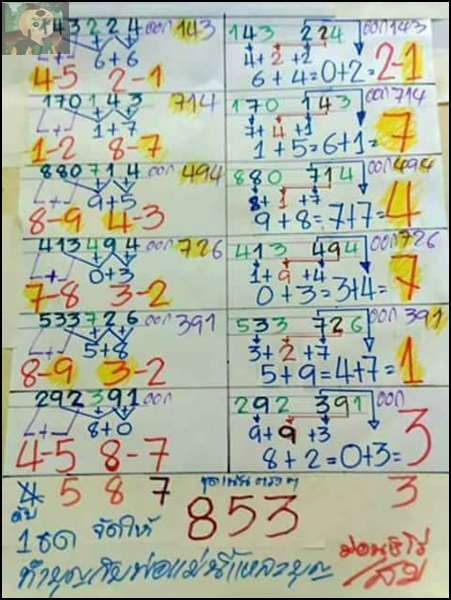 143224 ออก 143
6+6
4-5 2-1
143 224 ออก 143
4+2+2
6+4=0+2=2-1
170143 714
L+J
1+7
1-2 8-7
170 143 ออก 714
7+4+1
1+5=6+1=7
880714 ออก 494
L+J
9+5
8-9 4-3
880 714 ออก 494
8+1+7
9+8=7+7=4
413494 ออก 726
L+J
0+3
7-8 3-2
413 494 ออก 726
1+9+4
0+3=3+4=7
533726 ออก 391
L+J
5+8
8-9 3-2
533 726 ออก 391
3+2+7
5+9=4+7=1
292391 ออก
L+J
8+0
4-5 8-7
292 391 ออก
9+9+3
8+2=0+3=3
4 5 8 7
853
3
ดับ
1 ชุด จัดให้
ทำบุญกับพ่อแม่นี่แหละบุญ